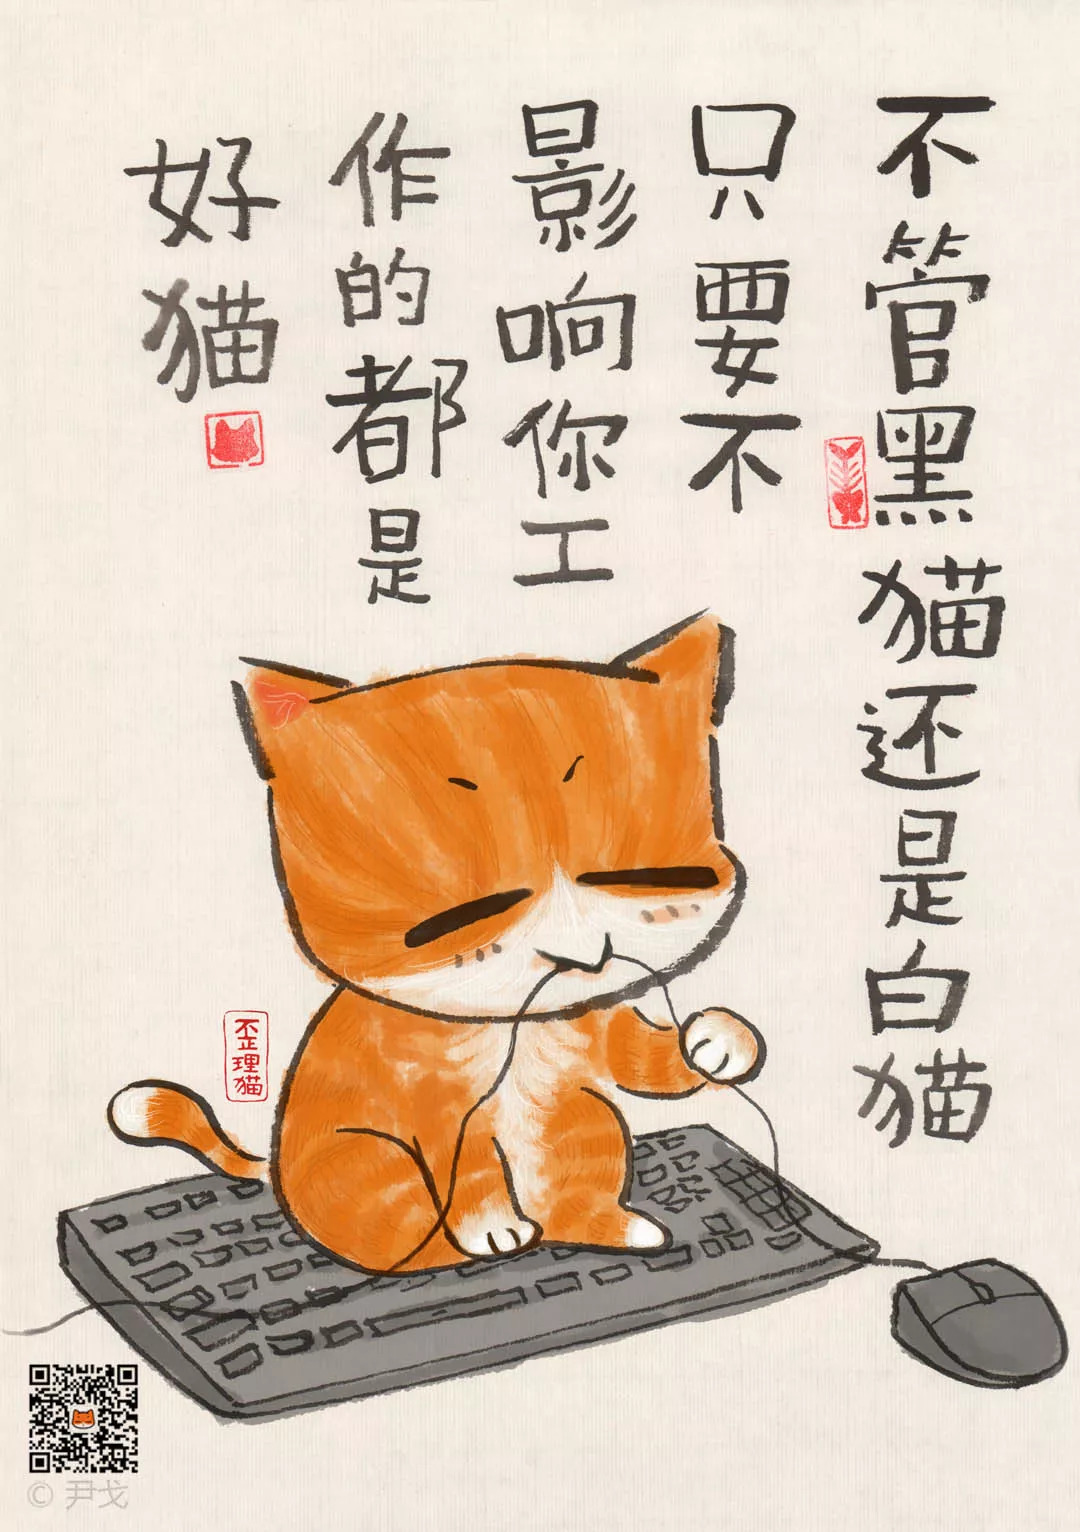 不管黑猫还是白猫
只要不
影响你工
作的都是
好猫
歪理猫
© 尹戈